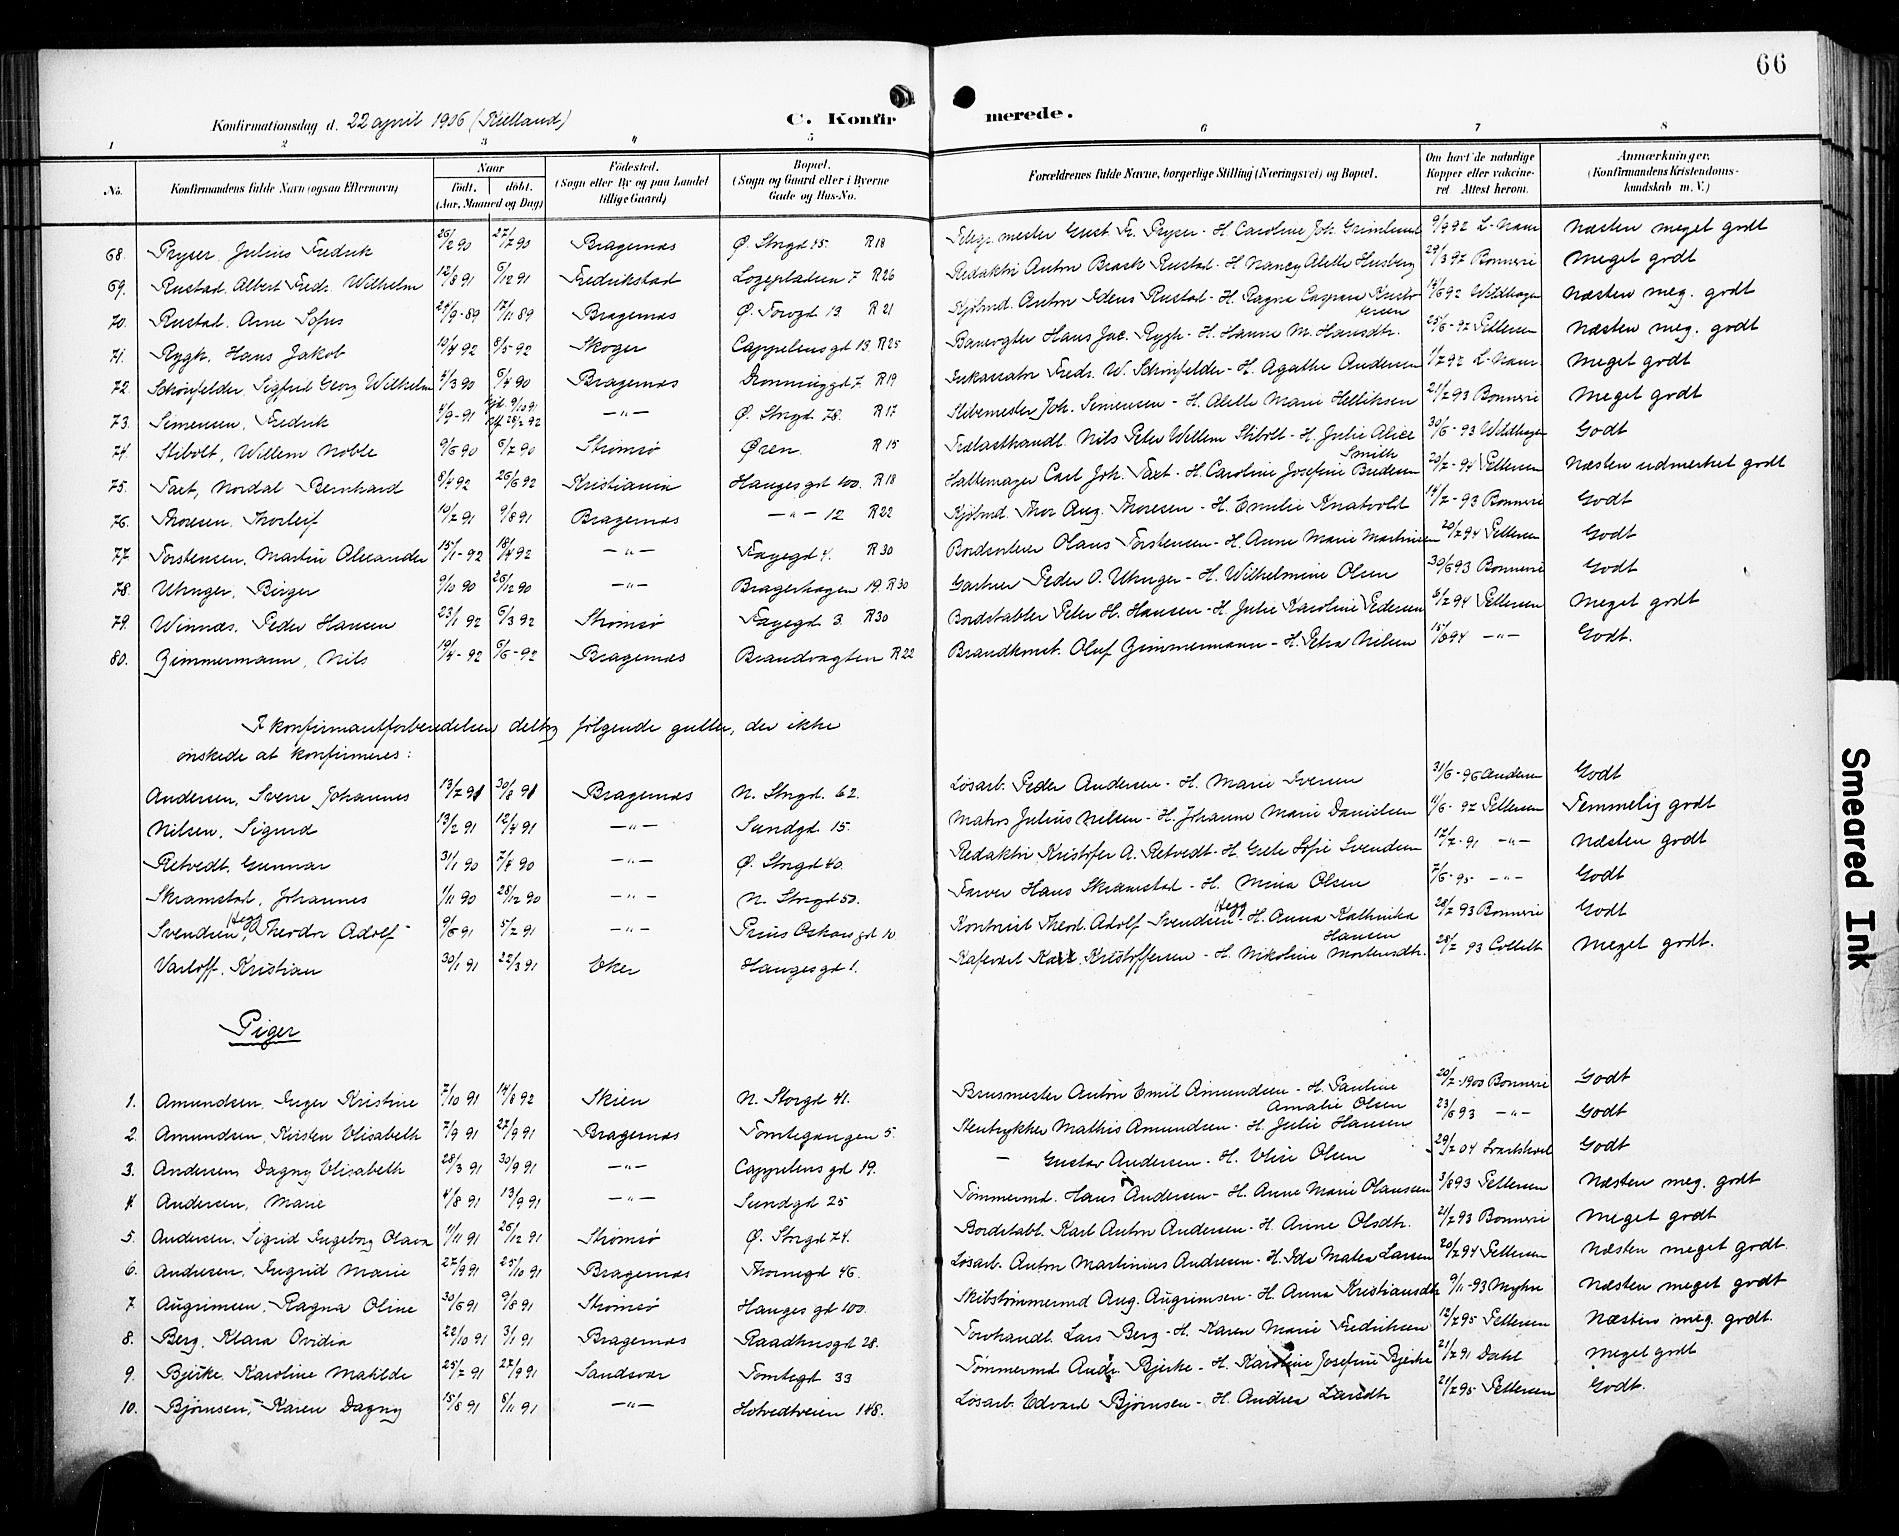 66
Konfirmationsdag d. 22 april 1906 (Kielland)
C. Konfirmerede.
1 2 3 4 5 6 7 8
No. Konfirmandens fulde Navn (ogsaa Efternavn) Naar født. døbt. (Aar, Maaned og Dag) Fødested. (Sogn eller By og paa Landet tillige Gaard) Bopæl. (Sogn og Gaard eller i Byerne Gade og Hus-No. Forældrenes fulde Navne, borgerlige Stilling (Næringsvei) og Bopæl. Om havt de naturlige Kopper eller vakcineret. Attest herom. Anmærkninger. (Konfirmandens Kristendomskundskab m. V.)
68. Pryser, Julius Fredrik 26/2 90 27/7 90 Bragernæs Ø. Strgd 15 R18 Telegr.mester Gust. Fr. Pryser - H. Caroline Joh. 9/9 92 L-Næss Næsten meget godt
69. Rustad, Albert Fredr. Wilhelm 12/8 91 6/12 91 Fredrikstad Logepladsen 7 R26 Redaktør Anton Brack Rustad - H. Nancy Alette Husberg 29/3 92 Bonnevie Meget godt
70. Rustad, Arne Sofus 24/9 - 89 17/11 89 Bragernæs Ø. Torvgd 13 R21 Kjøbmd. Anton Idens Rustad - H. Ragna Caspara 14/6 92 Wildhagen Næsten meg. godt
71. Rygh, Hans Jakob 10/4 92 8/5 - 92 Skoger Cappelens gd 13 R25 Banevogter Hans Jac. Rygh - H. Hanne M. Hansdtr. 25/6 - 92 Pettersen Næsten meg. godt
72. Schönfelder, Sigfred Georg Wilhelm 4/3 90 6/4 90 Bragernæs Dronninggd 7 R19 Inkassator Fredr. W. Schönfelder - H. Agathe Andersen 1/7 92 L-Næss Meget godt
73. Simensen, Fredrik 4/9 - 91 — " — Ø. Strgd. 78. R17 Slebemester Joh. Simensen - H. Alette Marie Helliksen 21/2 93 Bonnevie Meget godt
74. Stibolt, Willem Noble 9/6 90 6/7 90 Strømsø Øren. R15 Trælasthandl. Nils Peter Willem Stibolt - H. Julie Alice Smith 30/6 - 93 Wildhagen Godt
75. Taxt, Nordal Bernhard 8/4 92 26/6 92 Kristiania Hauges gd 100. R18 Hattemager Carl Joh. Taxt - H. Caroline Josefine Bredesen 20/2 - 94 Pettersen Næsten udmerket godt
76. Thoresen, Thorleif 10/2 91 9/8 91 Bragernæs — " — 12 R22 Kjøbmd. Thor Aug. Thoresen - H. Emelie Knatvold 14/2 - 93 Bonnevie Godt
77. Torstensen, Martin Alexander 15/1 - 92 18/4 92 — " — Fayegd 4. R30 Bordsorterer Olaus Torstensen - H. Anne Marie Martinsen 20/2 94 Pettersen Godt
78. Utenger, Birger 9/10 90 26/12 90 — " — Bragerhagen 19. R30 Gartner Peder O. Utenger - H. Wilhelmine Olsen 30/6 93 Bonnevie Godt
79. Winnæs, Peder Hansen 23/1 92 6/3 92 Strømsø Fayegd 3. R30 Bordstabler Peter H. Hansen - H. Julie Karoline Pedersen 6/2 94 Pettersen Meget godt
80. Zimmermann, Nils 19/4 - 92 6/6 - 92 Bragernæs Brandvagten R22 Brandkonst. Oluf Zimmermann - H. Petra Nielsen 15/6 94 — " — Godt.
I konfirmantforberedelsen deltog følgende gutter, der ikke
ønskede at konfirmeres:
Andersen, Sverre Johannes 13/2 91 30/8 91 Bragernæs N. Strgd. 62. Løsarb. Peder Andersen - H. Marie Iversen 31/6 - 96 Andersen Godt
Nilsen, Sigurd 13/2 91 12/4 91 — " — Sundgd 15. Matros Julius Nilsen - H. Johanne Marie Danielsen 4/6 - 92 Pettersen Temmelig godt
Retvedt, Gunnar 31/1 90 7/4 90 — " — Ø. Strgd 40. Redaktør Kristofer A. Retvedt - H. Grete Sofie Svendsen 17/2 - 91 — " — Næsten godt
Skramstad, Johannes 1/11 90 28/12 90 — " — N. Strgd 50. Farver Hans Skramstad - H. Mina Olsen 7/6 - 95 — " — Godt
Svendsen, Hegg Theodor Adolf 9/6 91 5/7 91 — " — Prins Oskars gd 10 Kontorist Theod. Adolf Svendsen Hegg - H. Anna Kathinka Hansen 28/2 93 Bonnevie Godt
Varloff, Kristian 30/1 91 22/3 91 Eker Hauges gd 1. Kafevert Karl Kristoffersen - H. Nikoline Mortensdtr. 28/2 93 Collett Meget godt.
Piger
1. Amundsen, Inger Kristine 7/10 91 14/8 92 Skien N. Storgd 41. Brusmester Anton Emil Amundsen - H. Pauline Amalie Olsen 20/2 - 1900 Bonnevie Godt
2. Amundsen, Kirsten Elisabeth 7/9 91 27/9 91 Bragernæs Tomtegangen 5. Stentrykker Mathis Amundsen - H. Julie Hansen 23/6 93 — " — Godt
3. Andersen, Dagny Elisabeth 28/3 91 30/9 91 — " — Cappelens gd 19. — Gustav Andersen - H. Elise Olsen 29/2 04 Godt
4. Andersen, Marie 4/8 91 13/9 91 — " — Sundgd 25 Tømmermd. Hans Andersen - H. Anne Marie Olaussen 3/6 93 Pettersen Næsten meg. godt
5. Andersen, Sigrid Ingeborg Olava 11/11 91 26/12 91 Strømsø Ø. Strgd 74. Bordstabl. Karl Anton Andersen - H. Anne Olsdtr. 21/2 93 Bonnevie Meget godt
6. Andresen, Ingrid Marie 27/9 91 25/10 91 Bragernæs Thornegd 46. Løsarb. Anton Martinius Andresen - H. Ida Matea Larsen 20/2 94 Pettersen Næsten meget godt.
7. Augrimsen, Ragna Oline 30/6 91 9/8 91 Strømsø Hauges gd 100. Skibstømmermd Aug. Augrimsen - H. Anna Kristiansdtr 9/11 - 93 Myhre Næsten meget godt
8. Berg, Klara Ovidia 22/10 91 3/1 91 Bragernæs Raadhusgd 28. Torvhandl. Lars Berg - H. Karen Marie Fredriksen 12/2 95 Pettersen Næsten meg. godt.
9. Bjerke, Karoline Matilde 25/7 91 27/9 91 Sandsvær Tomtegd 33 Tømmermd Andr. Bjerke - H. Karoline Josefine Bjerke 21/2 91 Dahl Meget godt
10. Bjørnsen, Karen Dagny 15/8 91 8/11 91 — " — Hotvedtveien 148. Løsarb. Edvard Bjørnsen - H. Andrea Larsdtr 21/2 95 Pettersen Godt.
Smeared Ink